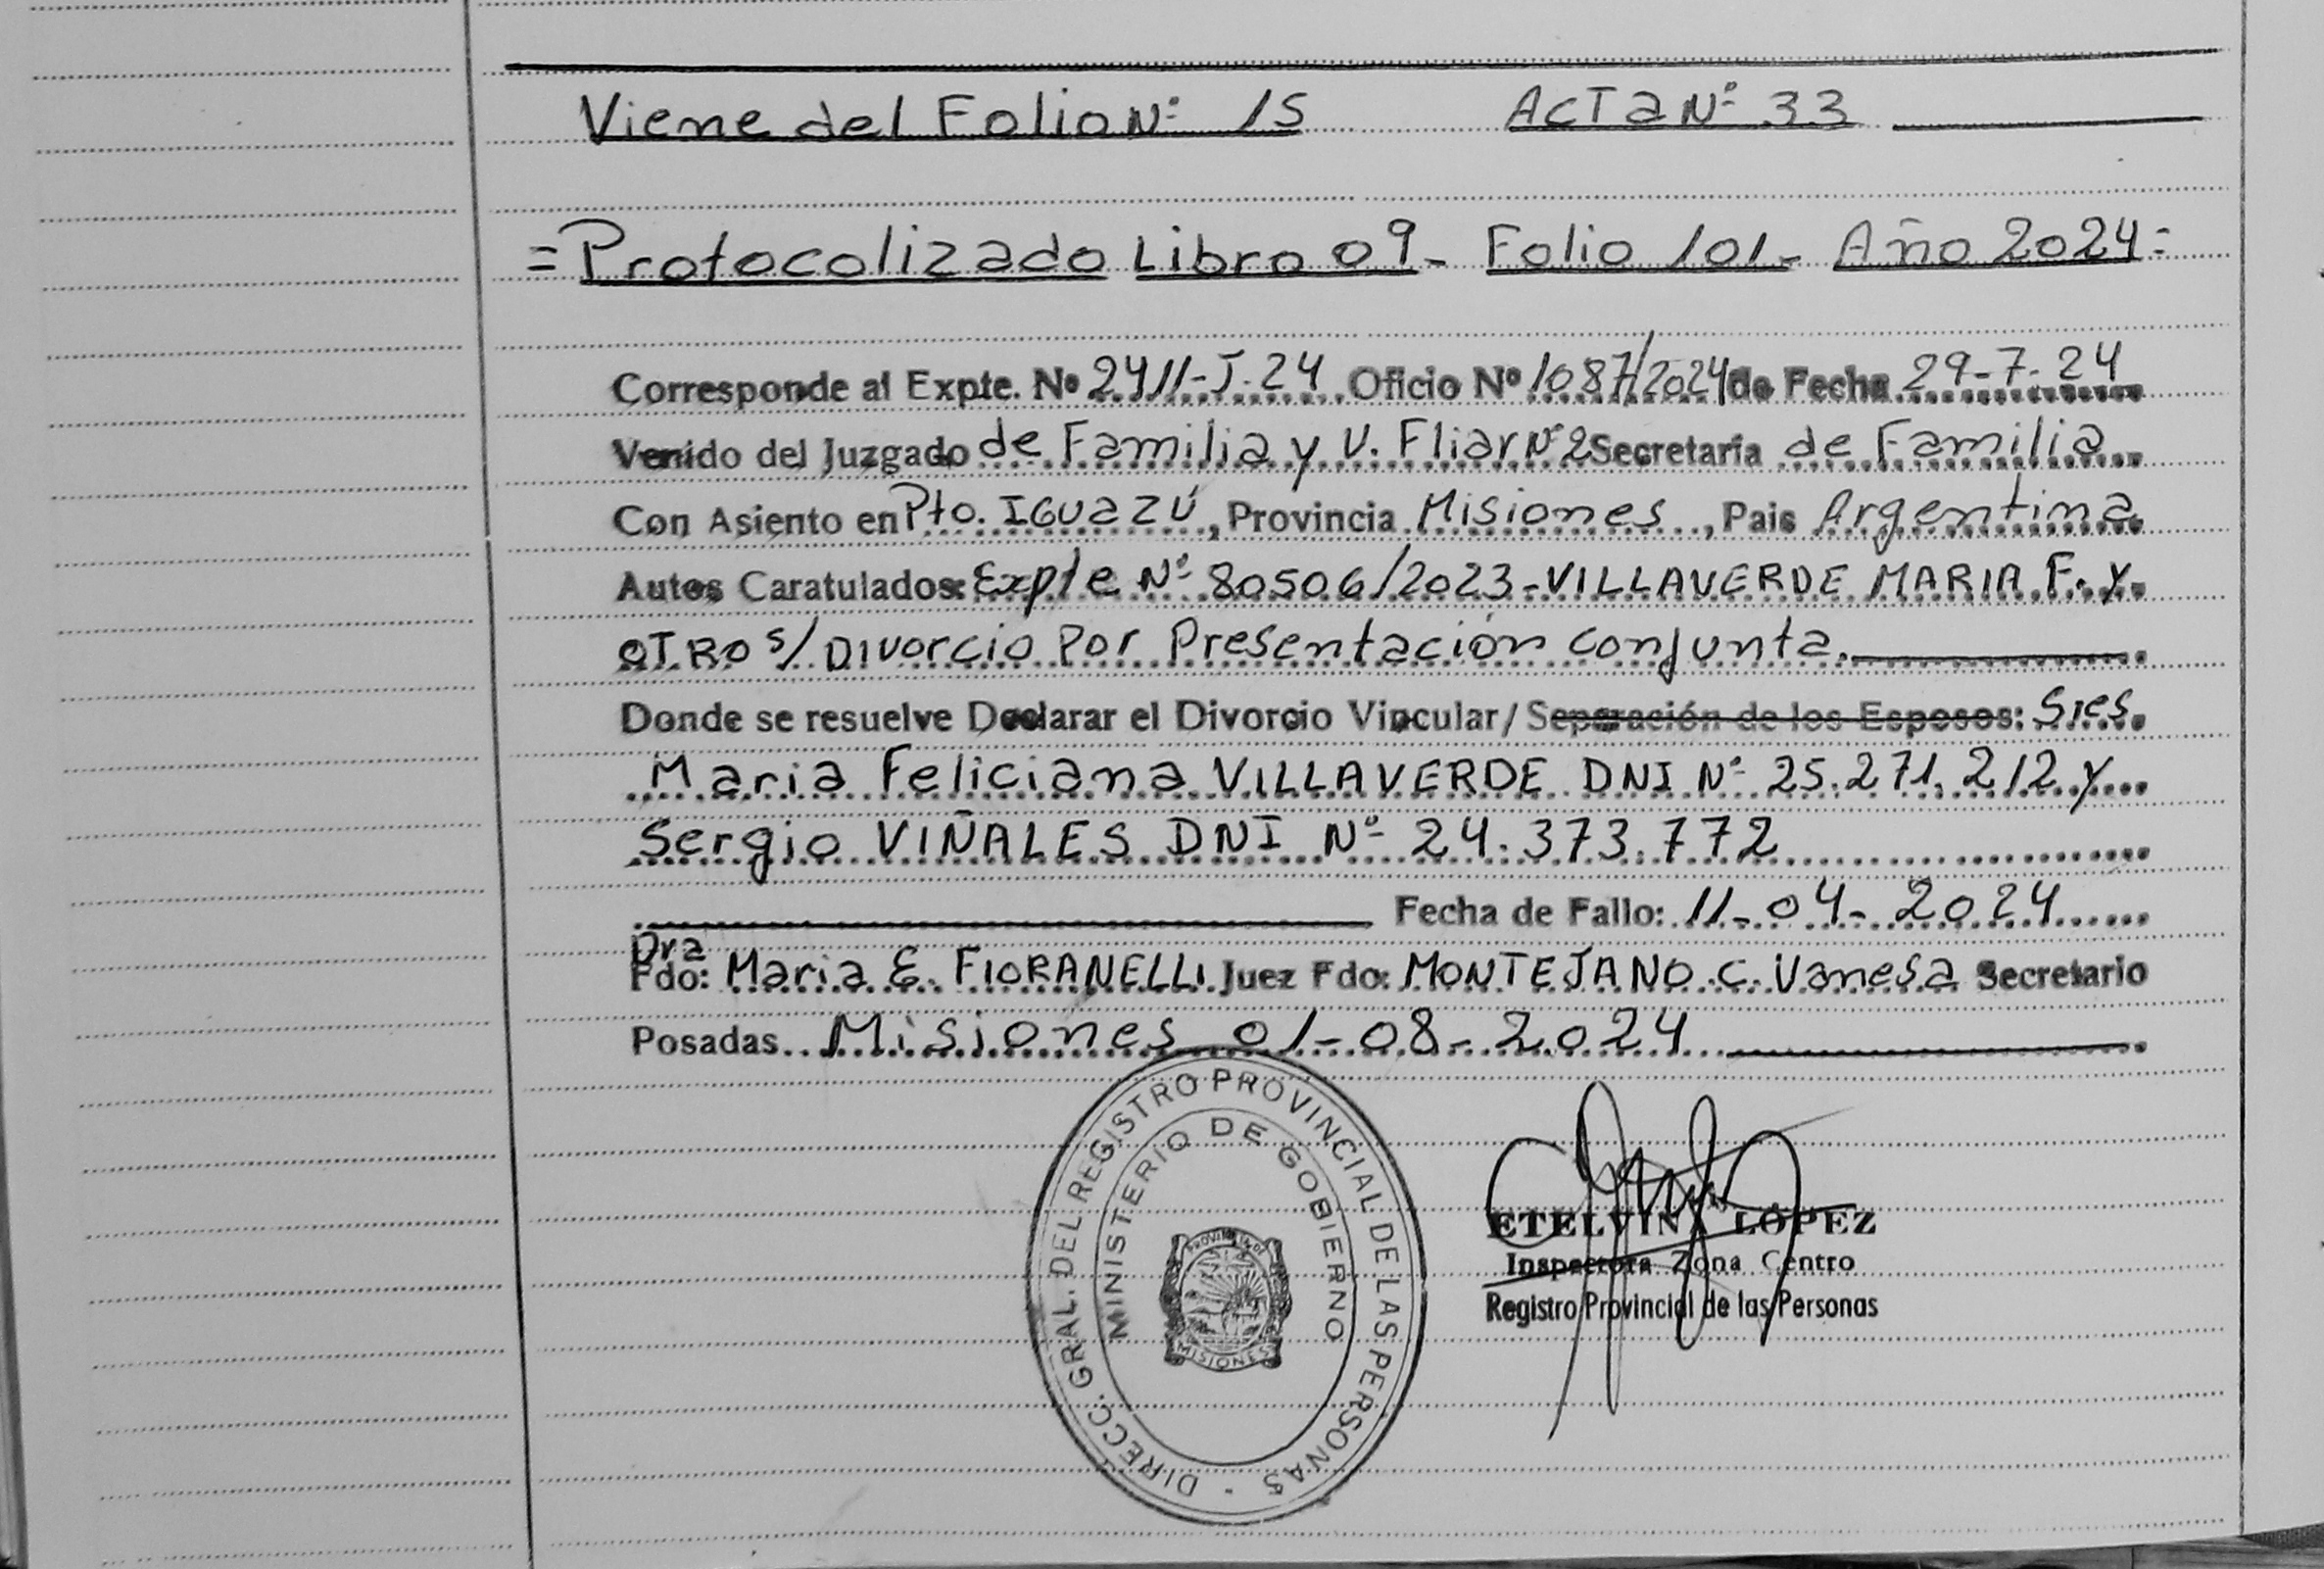 Viene del Folio Nº 15 ActaNº 33
=Protocolizado Libro 09- Folio 101- Año 2024=
Corresponde al Expte. Nº 2411-I-24 Oficio Nº 1087/2024 de Fecha 29-7-24
Venido del Juzgado de Familia y V. Fliar Nº2 Secretaría de Familia
Con Asiento en Pto. IGuazú, Provincia Misiones, Pais Argentina
Autos Caratulados: Expte Nº 80506/2023-VILLAVERDE MARIA F. y
OTRO s/ Divorcio Por Presentación conjunta.
Donde se resuelve Declarar el Divorcio Vincular/Separación de los Esposos: Sres.
Maria Feliciana VILLAVERDE DNI Nº 25.271.212 y
Sergio VIÑALES DNI Nº 24.373.772
Fecha de Fallo: 11-04-2024
Dra
Fdo: Maria E. FIORANELLI Juez Fdo: MONTEJANO C. Vanesa Secretario
Posadas Misiones 01-08-2024
DIRECC. GRAL. DEL REGISTRO PROVINCIAL DE LAS PERSONAS -
MINISTERIO DE GOBIERNO
PROVINCIA DE
MISIONES
ETELVINA LÓPEZ
Inspectora Zona Centro
Registro Provincial de las Personas